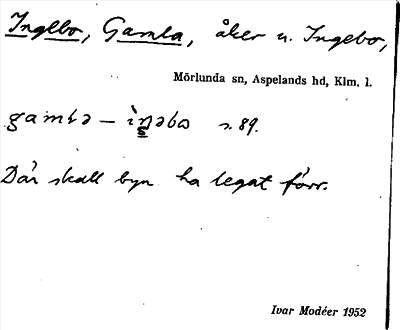 Ingebo, Gamla, åker u. Ingebo,
Mörlunda sn, Aspelands hd, Klm. l.
s. 89.
Där skall byn ha legat förr.
Ivar Modéer 1952